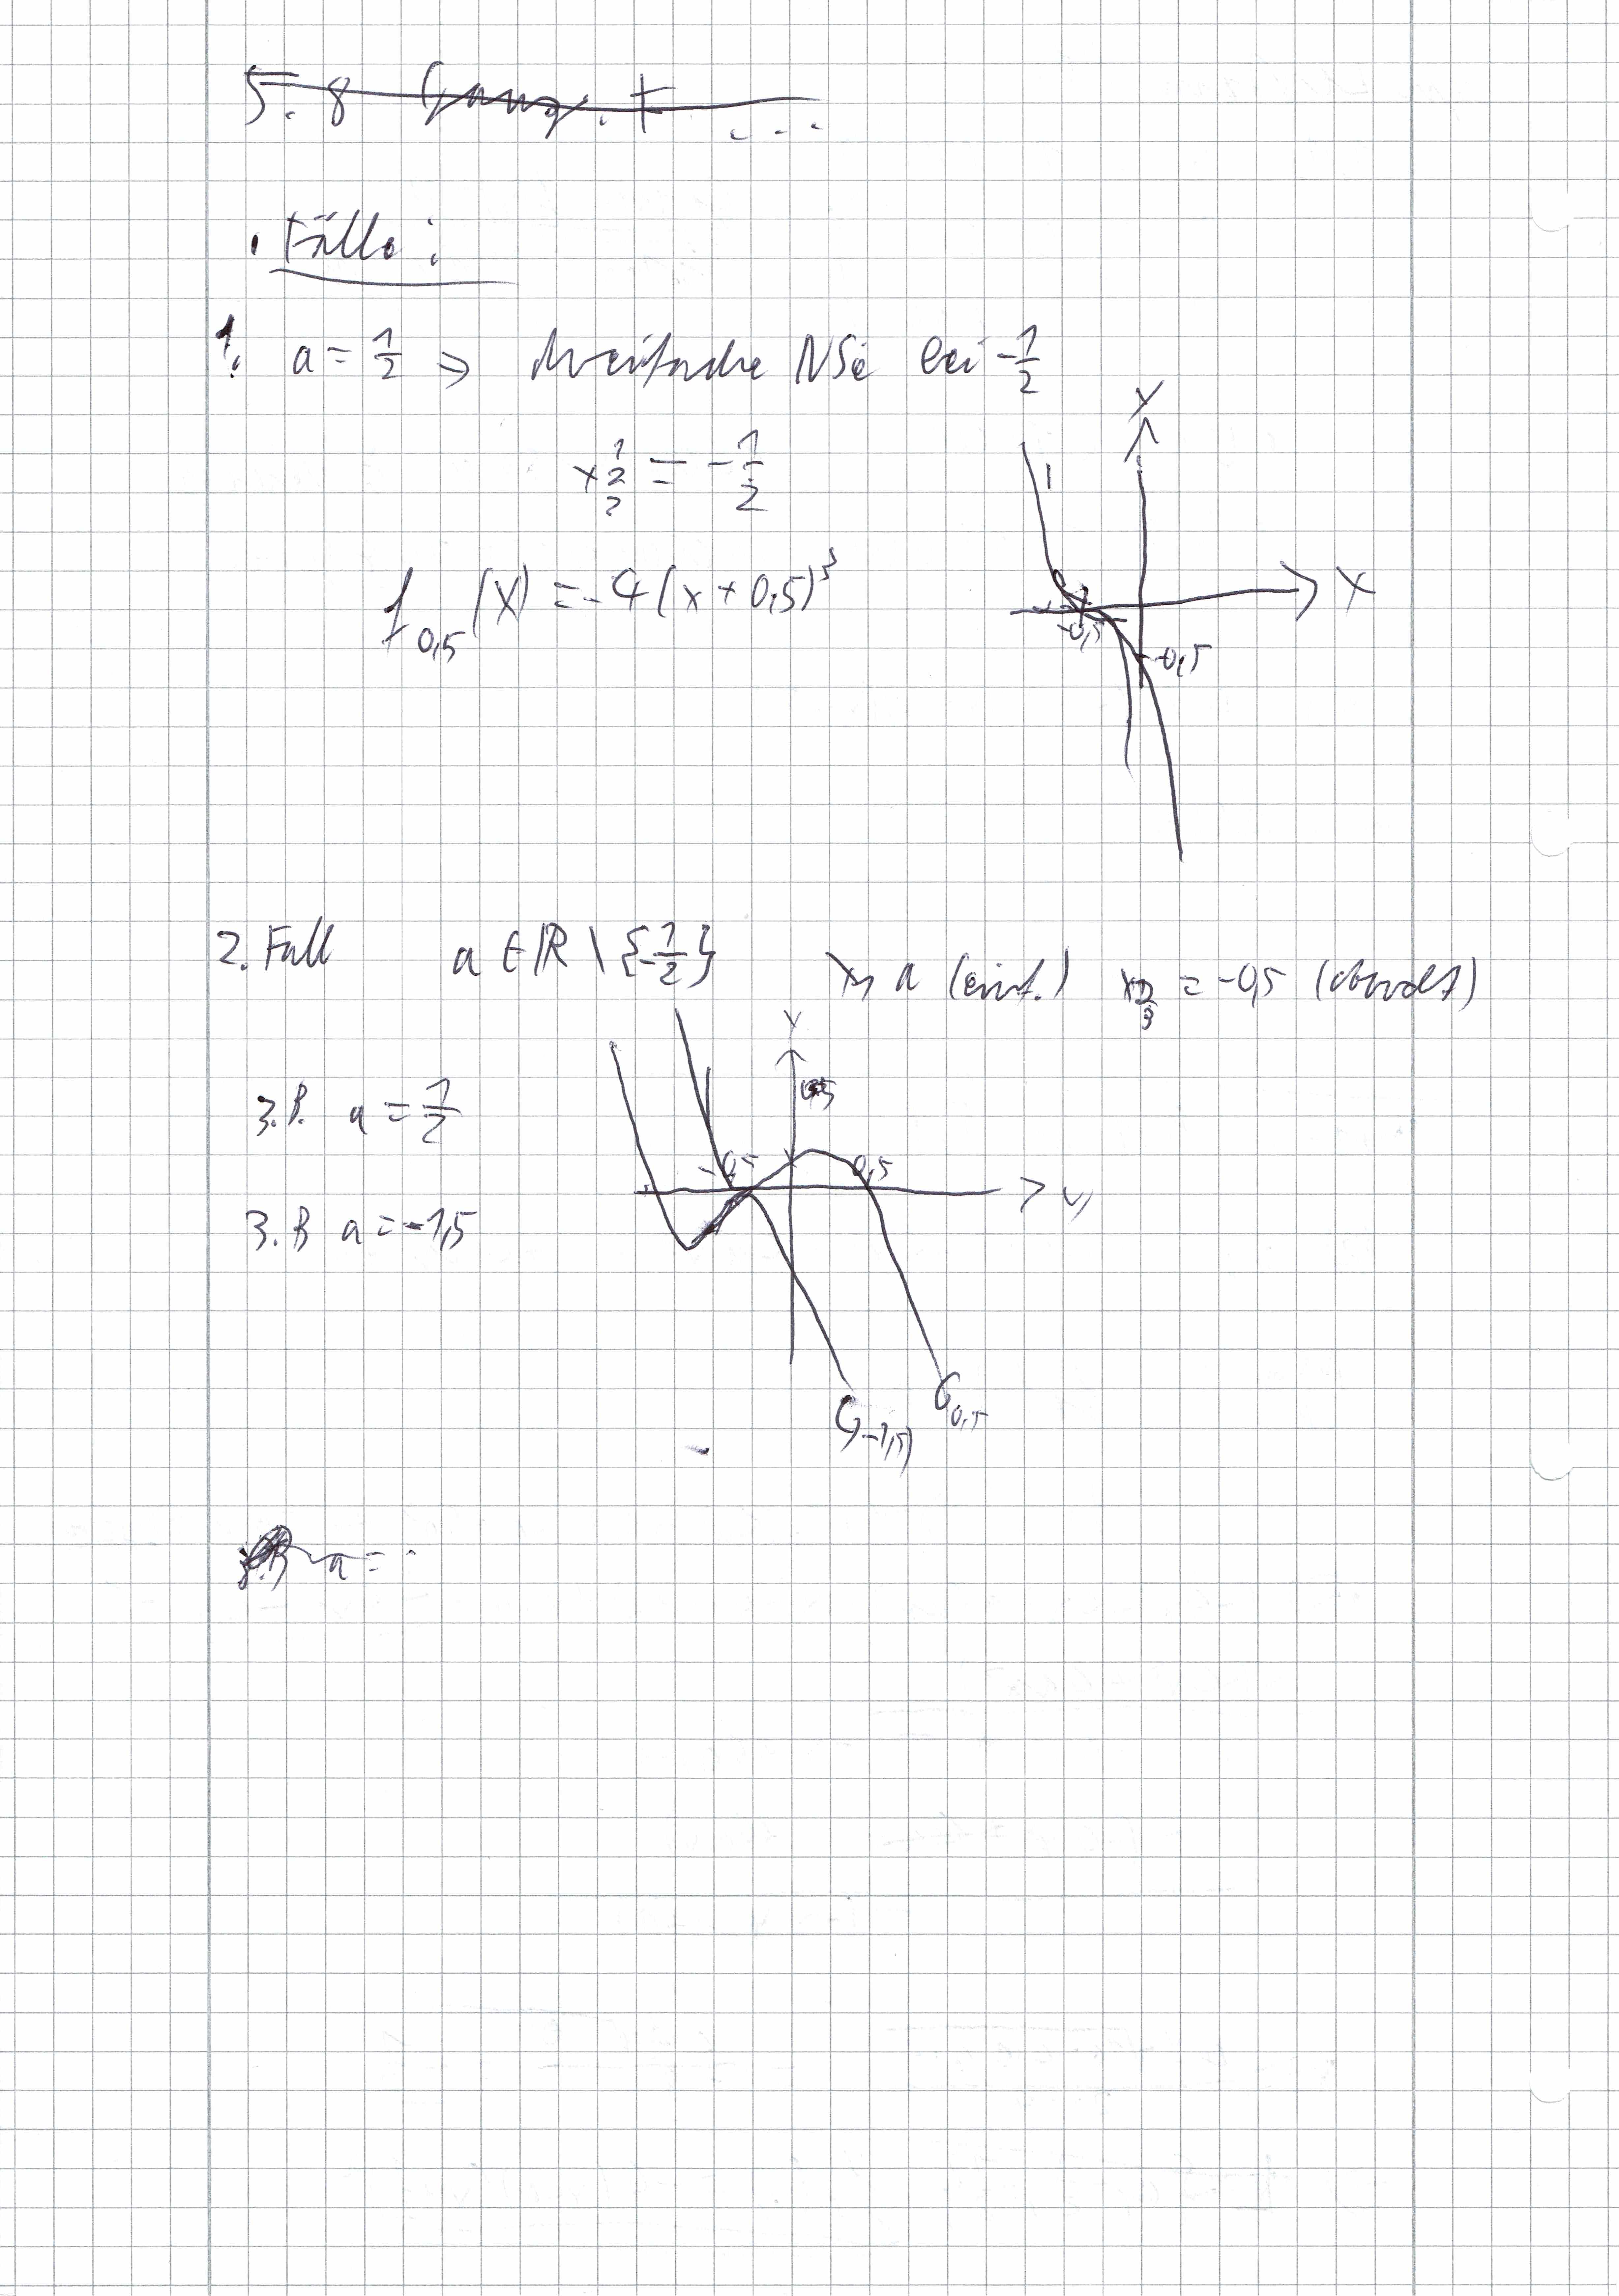 5.8 Ganzr. F ...
Fälle:
1. a = 1/2 ⇒ dreifache NSt bei -1/2
x 1 2 3 = -1/2
f 0,5 (x) = -4(x+0,5)³
y
1
x
-0,5
-0,5
2. Fall a ∈ ℝ \ {-1/2} x1 a (einf.) x 2 3 = -0,5 (doppelt)
y
z.B. a = 1/2
-0,5 0,5
z.B a = -1,5
G 0,5
G -1,5
z.B a =